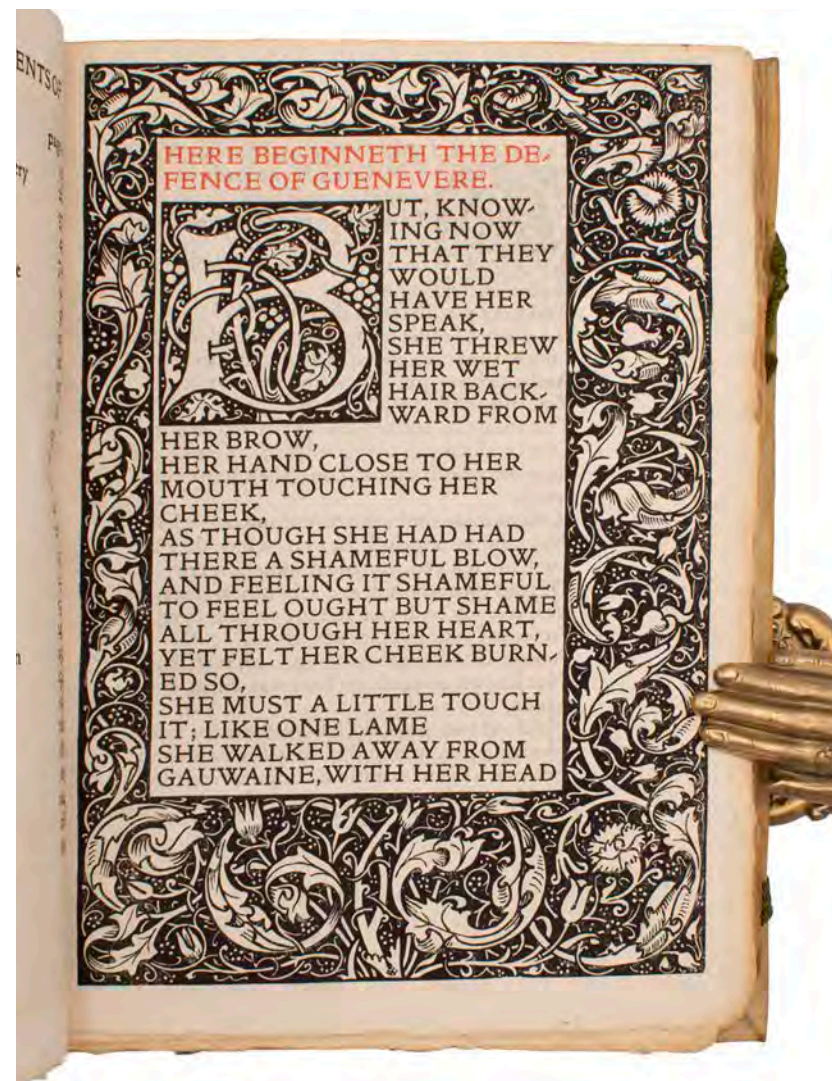 ENTS OF
HERE BEGINNETH THE DE-
FENCE OF GUENEVERE.
BUT, KNOW-
ING NOW
THAT THEY
WOULD
HAVE HER
SPEAK,
SHE THREW
HER WET
HAIR BACK-
WARD FROM
HER BROW,
HER HAND CLOSE TO HER
MOUTH TOUCHING HER
CHEEK,
AS THOUGH SHE HAD HAD
THERE A SHAMEFUL BLOW,
AND FEELING IT SHAMEFUL
TO FEEL OUGHT BUT SHAME
ALL THROUGH HER HEART,
YET FELT HER CHEEK BURN-
ED SO,
SHE MUST A LITTLE TOUCH
IT; LIKE ONE LAME
SHE WALKED AWAY FROM
GAUWAINE, WITH HER HEAD